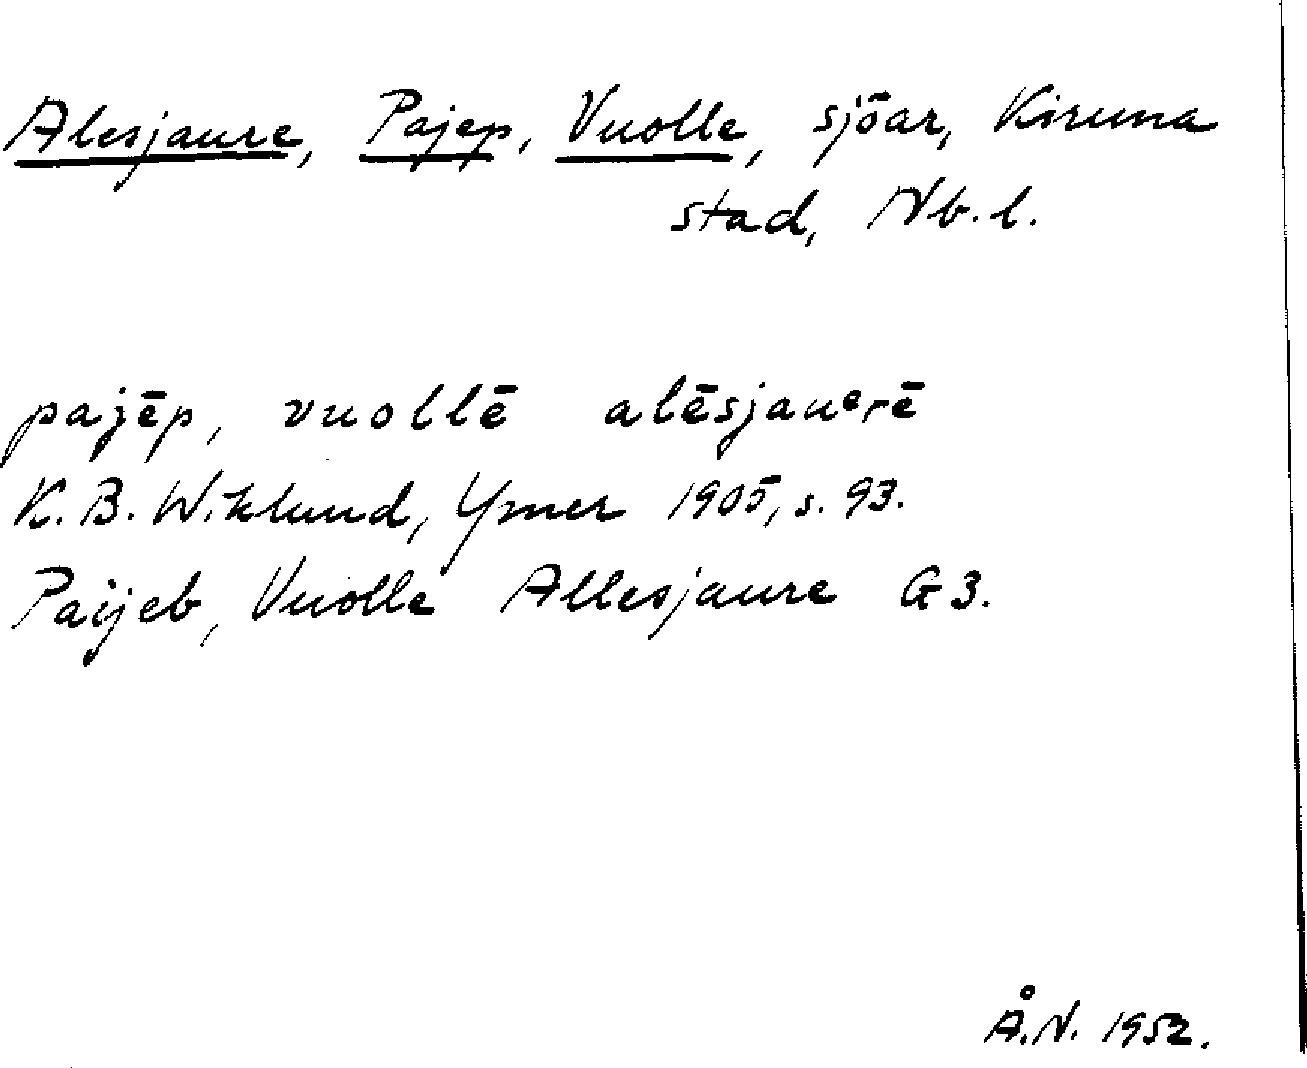 Alesjaure, Pajep, Vuolle, sjöar, Kiruna
stad, Nb.l.
pajēp, vuollē alēsjauᵉrē
K.B. Wiklund, Ymer 1905, s. 93.
Paijeb, Vuolle Allesjaure G3.
Å.N. 1952.